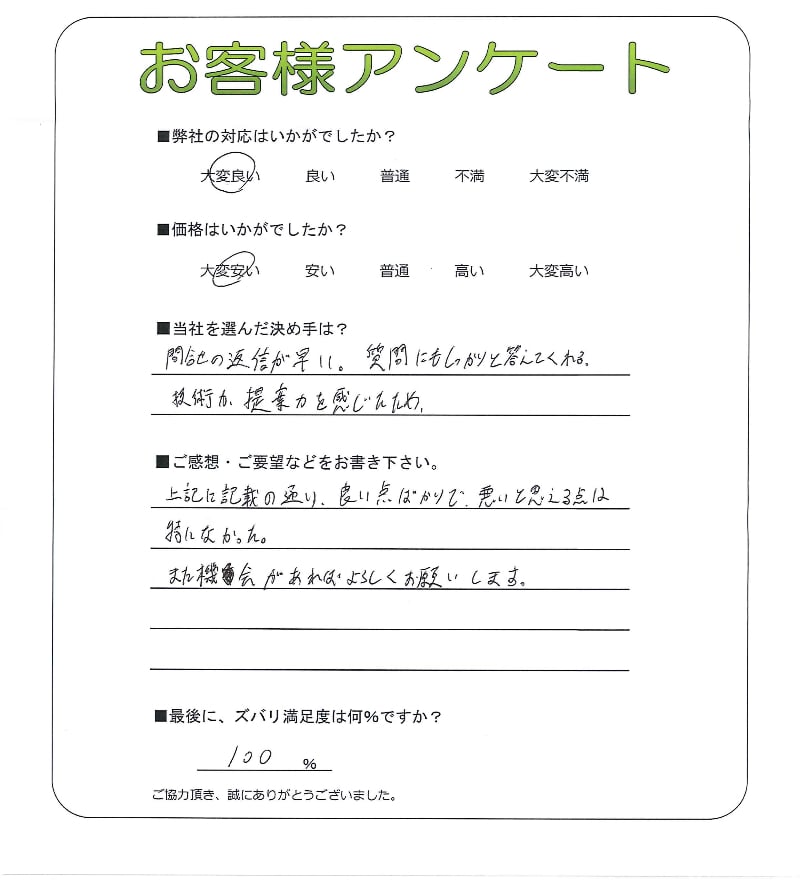 お客様アンケート
■弊社の対応はいかがでしたか？
大変良い 良い 普通 不満 大変不満
■価格はいかがでしたか？
大変安い 安い 普通 高い 大変高い
■当社を選んだ決め手は？
問合せの返信が早い。質問にもしっかりと答えてくれる。
技術力、提案力を感じたため。
■ご感想・ご要望などをお書き下さい。
上記に記載の通り、良い点ばかりで、悪いと思える点は
特になかった。
また機会があればよろしくお願いします。
■最後に、ズバリ満足度は何％ですか？
100 ％
ご協力頂き、誠にありがとうございました。